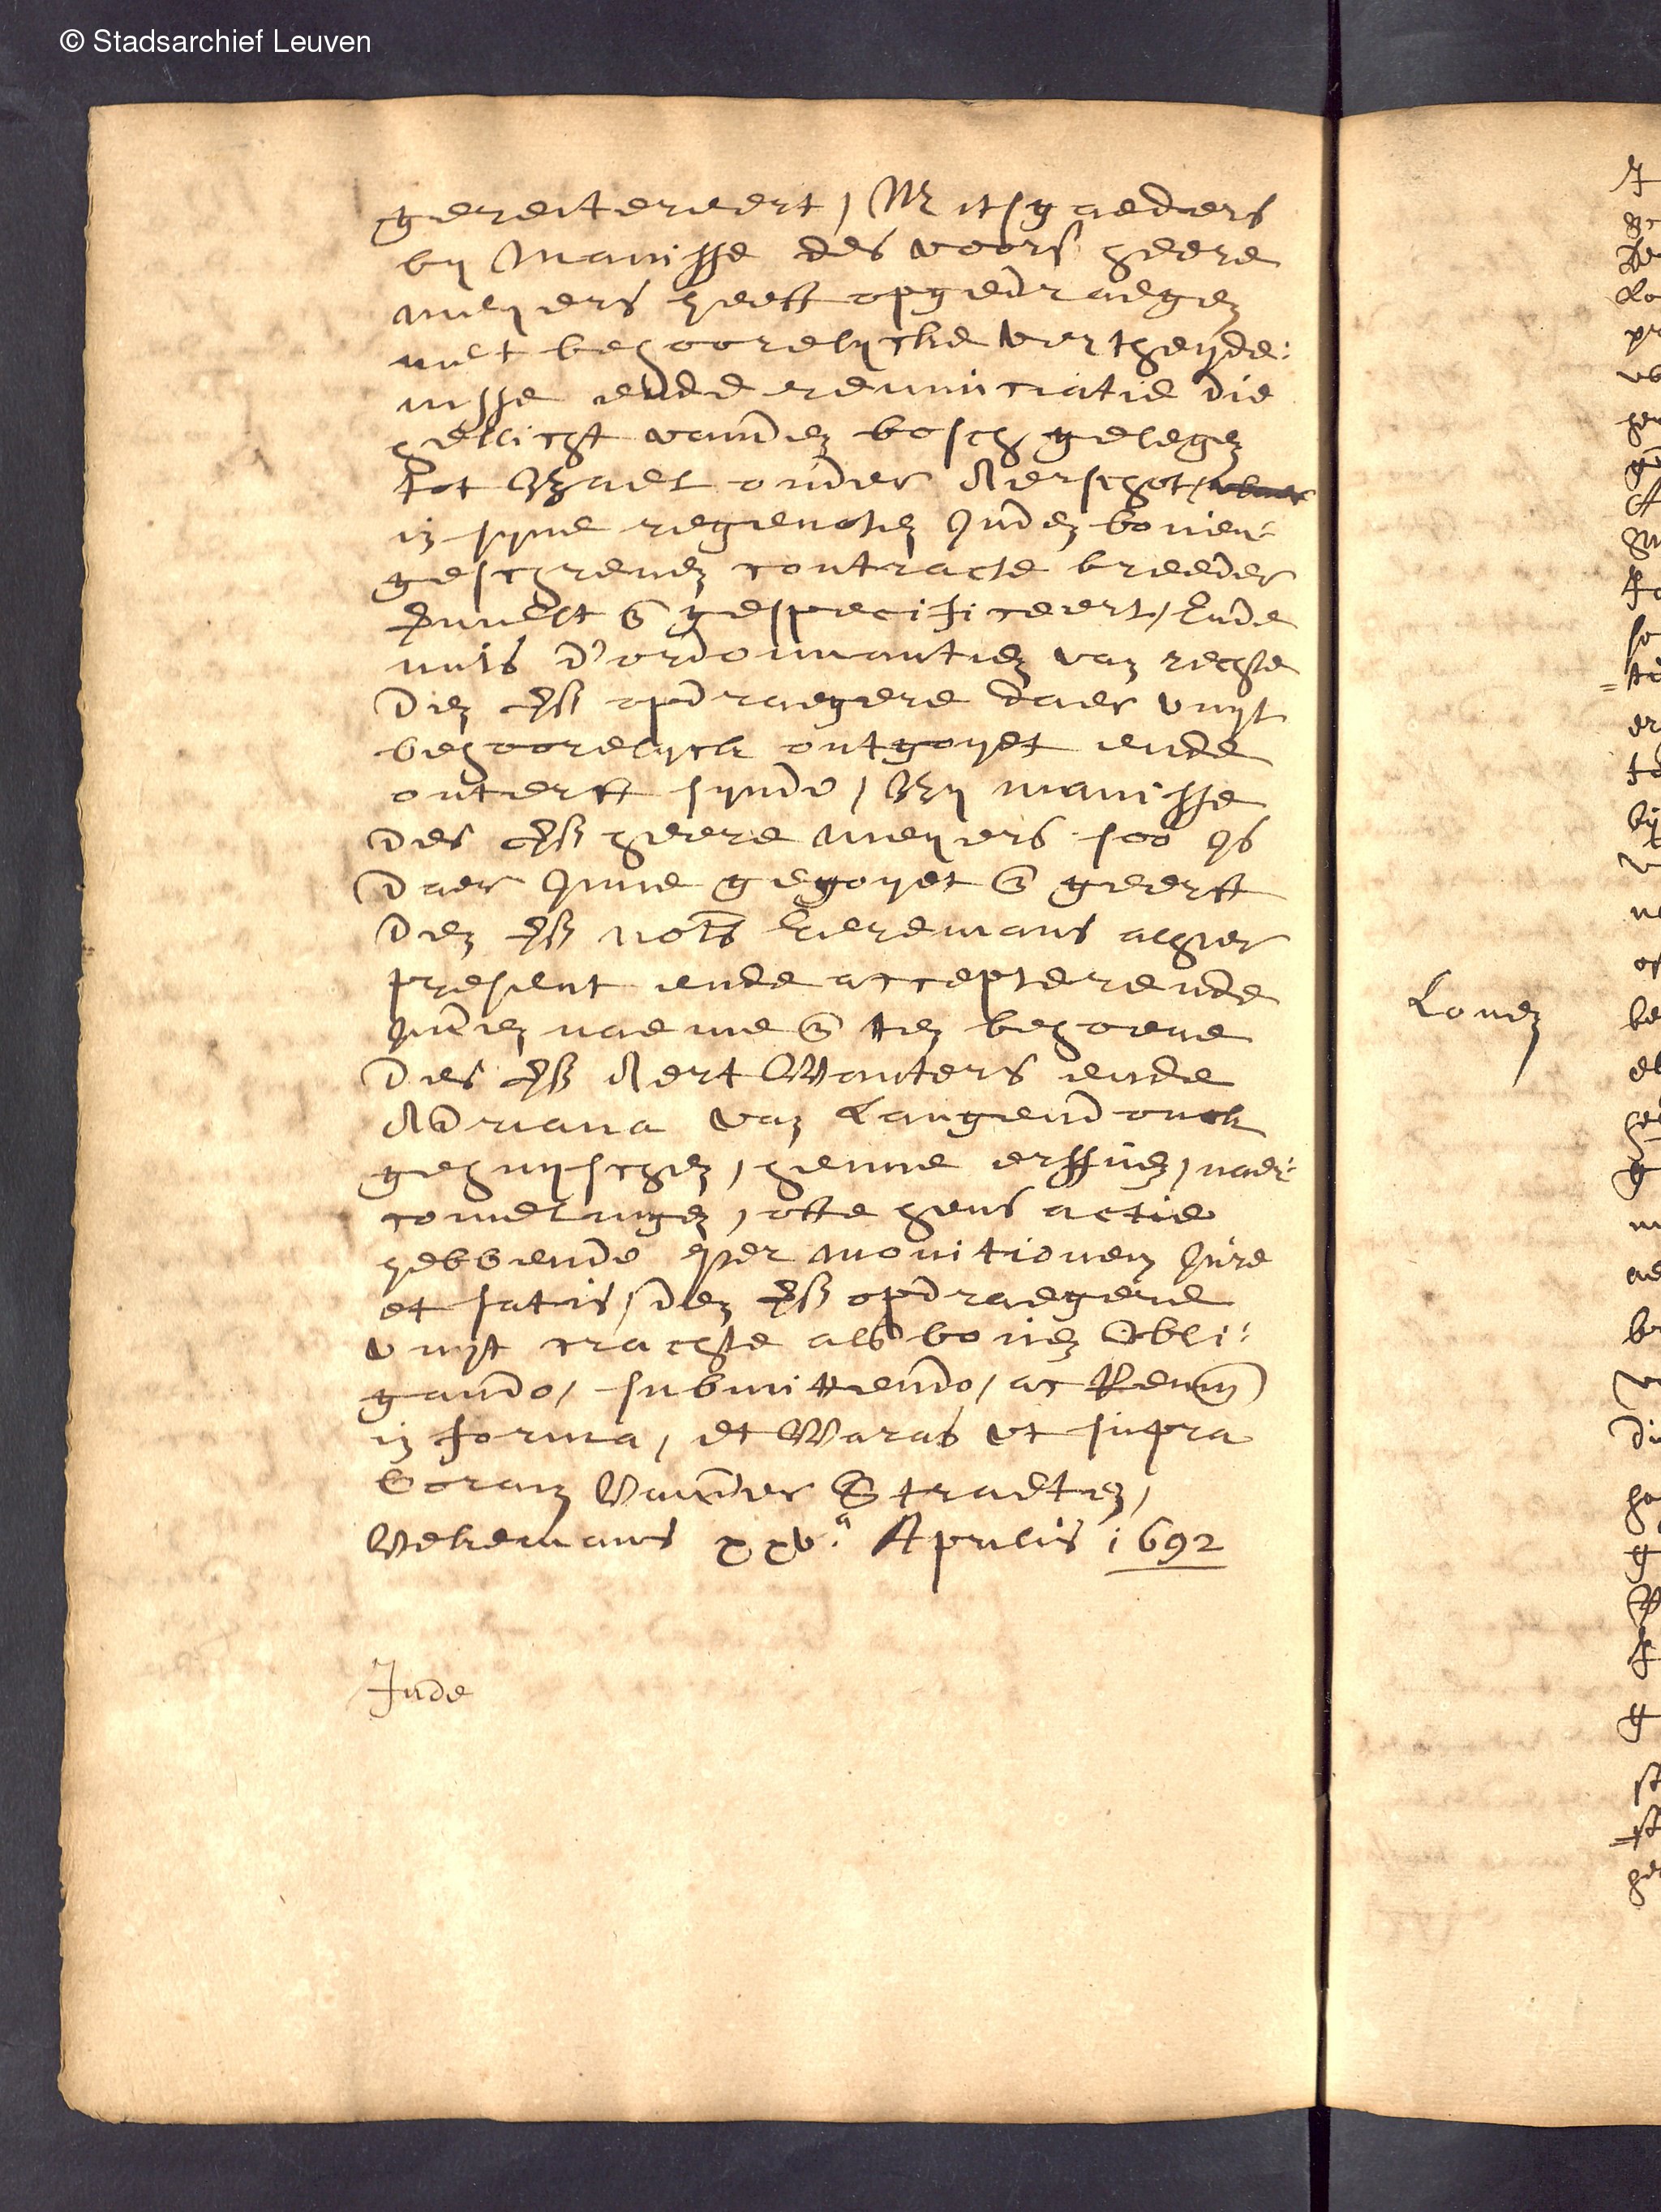 © Stadsarchief Leuven
gereitereert, Mitsgaeders
by manisse des voors heere
meyers heeft opgedraegen
met behoorelycke vertheyde:
nisse ende renunciatie die
hellicht vanden bosch gelegen
tot Bael onder Aerschot
in syne regenoten Inden boven:
geschreven contracte breeder
gespecificeert, Ende
mits d'ordonnantien van rechte
den opdraegere daer vuyt
behoorelyck ontgoyet ende
onterft synde, By manisse
des heere meyers soo Is
daer Inne gegoyet geerft
den nots alhier
present ende accepterende
Inden naeme ten behoeve
des Aert Wauters ende
Adriana van Langendonck
gehuyschen, henne erffven, naer:
comelingen, ofte hens actie
hebbende per monitionem Jure
et satis, den opdraegere
vuyt crachte als boven Obli:
gando, submittendo, ac Renun
in forma, et Waras vt supra
Coram Vander Straeten,
Vekemans xxva Aprilis 1692
Inde
Loven